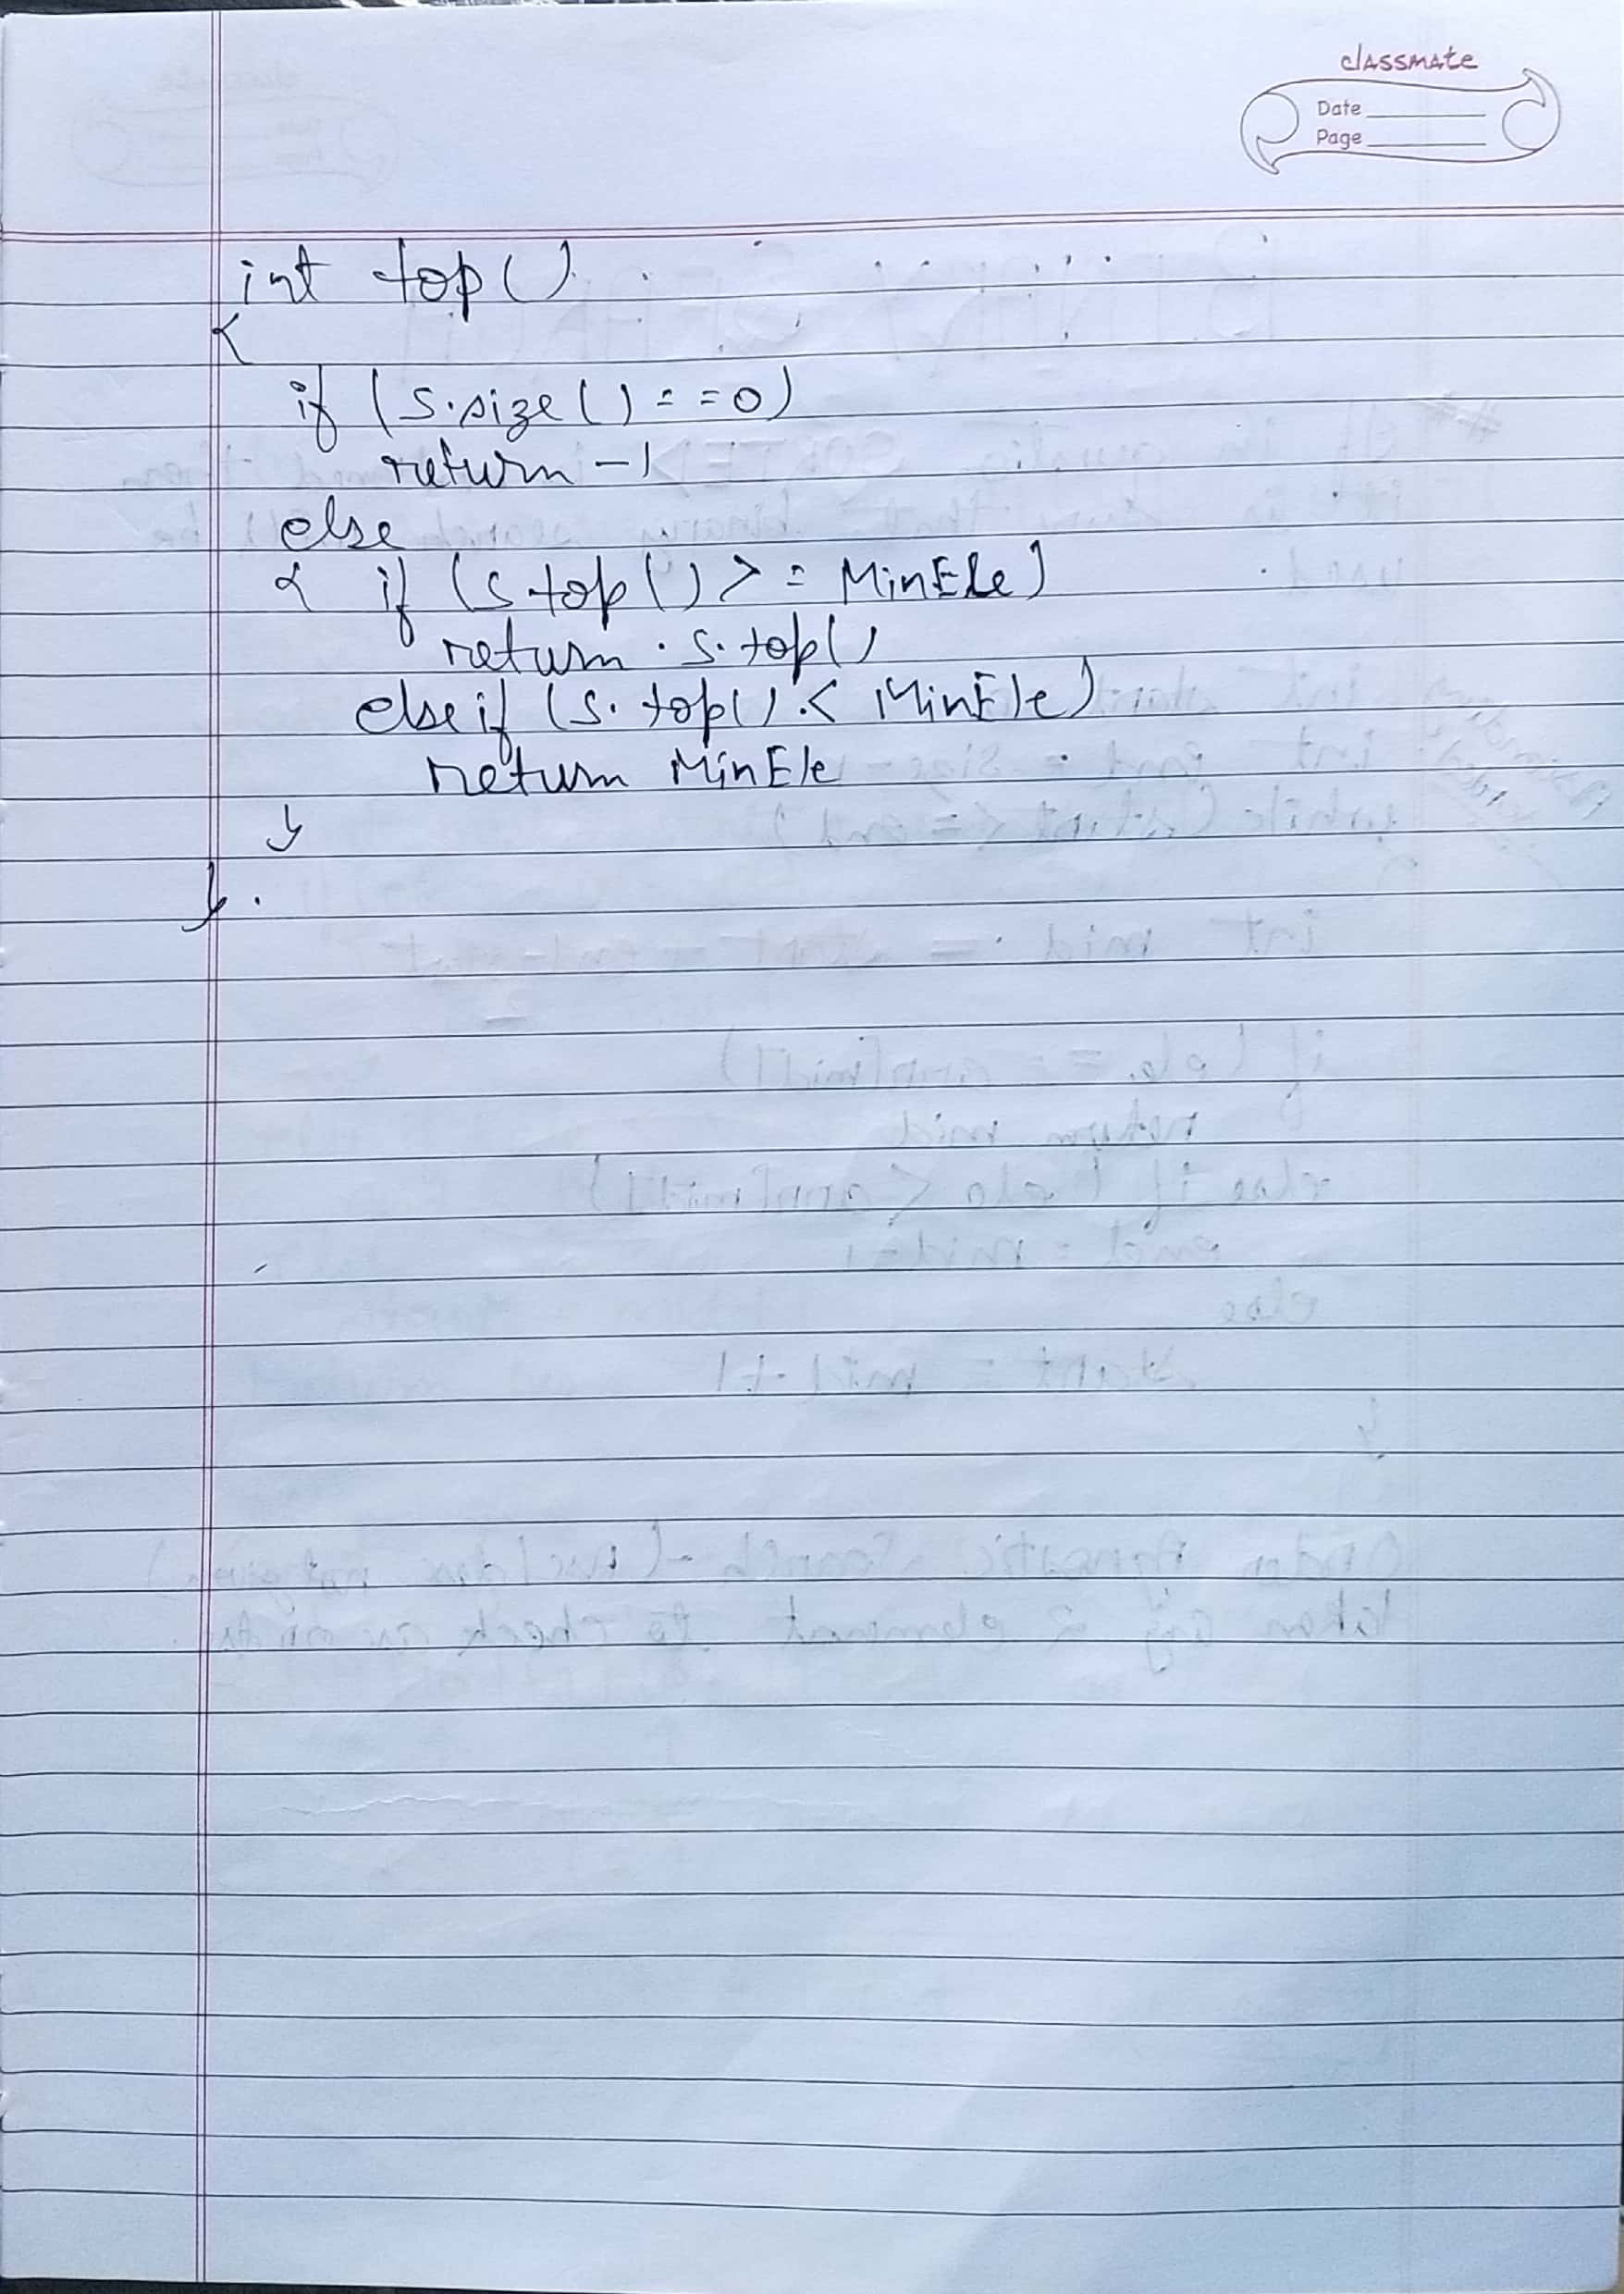 classmate
Date
Page
int top()
{
if (s.size() == 0)
return -1
else
{ if (s.top() >= MinEle)
return s.top()
else if (s.top() < MinEle)
return MinEle
}
}